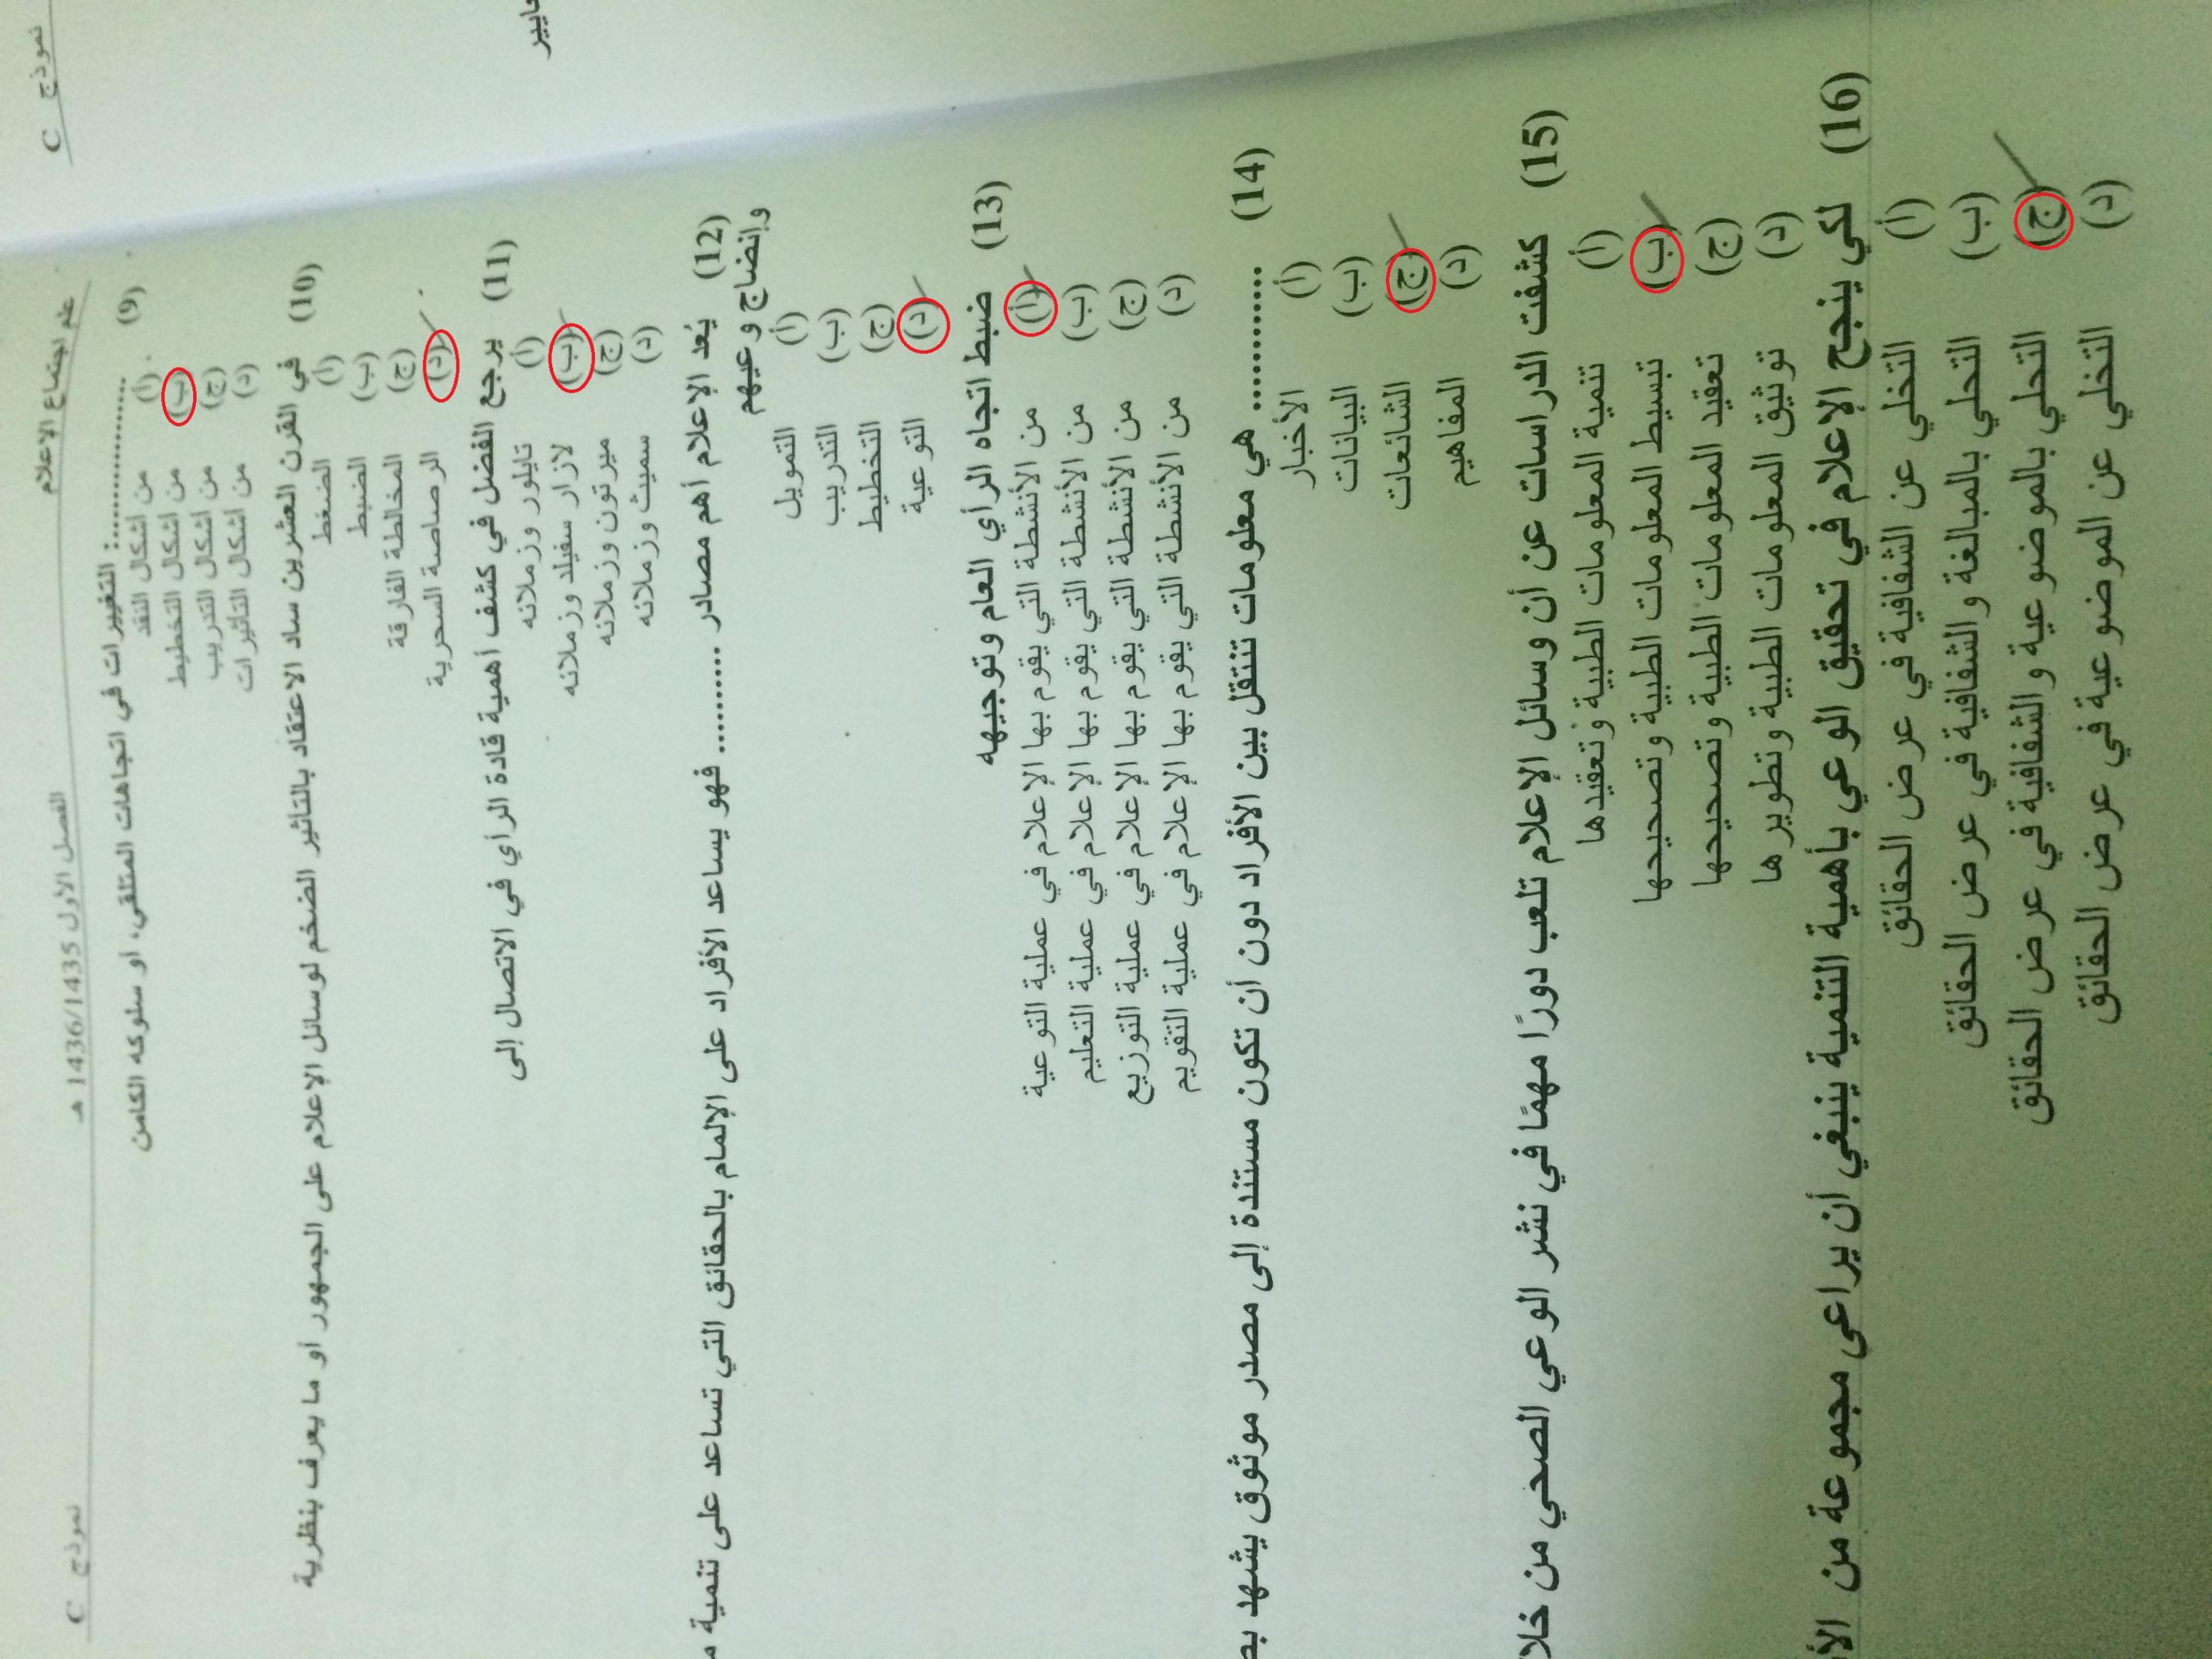 نموذج C
علم اجتماع الإعلام
الفصل الأول 1436/1435 هـ
نموذج C
(9) ................: التغييرات في اتجاهات المتلقي، أو سلوكه الكامن
(أ) من أشكال النقد
(ب) من أشكال التخطيط
(ج) من أشكال التدريب
(د) من أشكال التأثيرات
(10) في القرن العشرين ساد الاعتقاد بالتأثير الضخم لوسائل الإعلام على الجمهور أو ما يعرف بنظرية
(أ) الضغط
(ب) الضبط
(ج) المخالطة الفارقة
(د) الرصاصة السحرية
(11) يرجع الفضل في كشف أهمية قادة الرأي في الاتصال إلى
(أ) تايلور وزملائه
(ب) لازار سفيلد وزملائه
(ج) ميرتون وزملائه
(د) سميث وزملائه
(12) يُعد الإعلام أهم مصادر .......... فهو يساعد الأفراد على الإلمام بالحقائق التي تساعد على تنمية
وإنضاج وعيهم
(أ) التمويل
(ب) التدريب
(ج) التخطيط
(د) التوعية
(13) ضبط اتجاه الرأي العام وتوجيهه
(أ) من الأنشطة التي يقوم بها الإعلام في عملية التوعية
(ب) من الأنشطة التي يقوم بها الإعلام في عملية التعليم
(ج) من الأنشطة التي يقوم بها الإعلام في عملية التوزيع
(د) من الأنشطة التي يقوم بها الإعلام في عملية التقويم
(14) ............ هي معلومات تنتقل بين الأفراد دون أن تكون مستندة إلى مصدر موثوق يشهد
(أ) الأخبار
(ب) البيانات
(ج) الشائعات
(د) المفاهيم
(15) كشفت الدراسات عن أن وسائل الإعلام تلعب دورًا مهمًا في نشر الوعي الصحي من
(أ) تنمية المعلومات الطبية وتعقيدها
(ب) تبسيط المعلومات الطبية وتصحيحها
(ج) تعقيد المعلومات الطبية وتصحيحها
(د) توثيق المعلومات الطبية وتطويرها
(16) لكي ينجح الإعلام في تحقيق الوعي بأهمية التنمية ينبغي أن يراعى مجموعة من
(أ) التخلي عن الشفافية في عرض الحقائق
(ب) التحلي بالمبالغة والشفافية في عرض الحقائق
(ج) التحلي بالموضوعية والشفافية في عرض الحقائق
(د) التخلي عن الموضوعية في عرض الحقائق